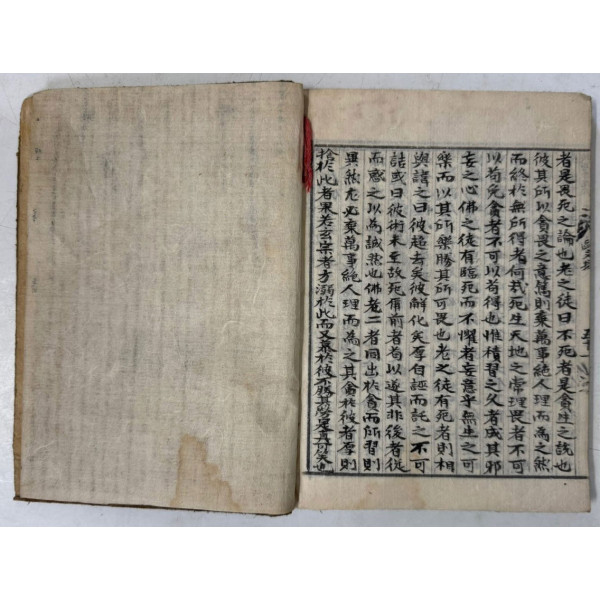 者是畏死之論也老之徒曰不死者是貪生之說也
彼其所以貪畏之意篤則棄萬事絕人理而為之然
而終於無所得者何哉死生天地之常理畏者不可
以苟免貪者不可以苟得也惟積習之久者成其邪
妄之心佛之徒有臨死而不懼者妄意乎無生之可
樂而以其所樂勝其所可畏也老之徒有死者則相
與諱之曰彼超去矣彼解化矣厚自誣而託之不可
詰或曰彼術未至故死爾前者苟以遂其非後者從
而惑之以為誠然也佛老二者同出於貪而所習則
異然由必棄萬事絕人理而為之其貪於彼者厚則
捨於此者果若玄宗者方溺於此而又慕於彼不勝其勞是真可笑也